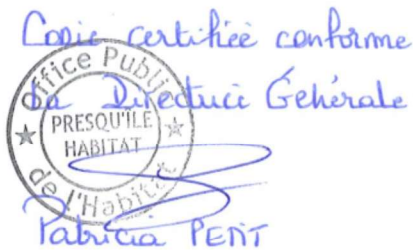 Copie certifiée conforme
La Directrice Générale
Office Public
PRESQU'ILE
HABITAT
de l'Habitat
Patricia PETIT